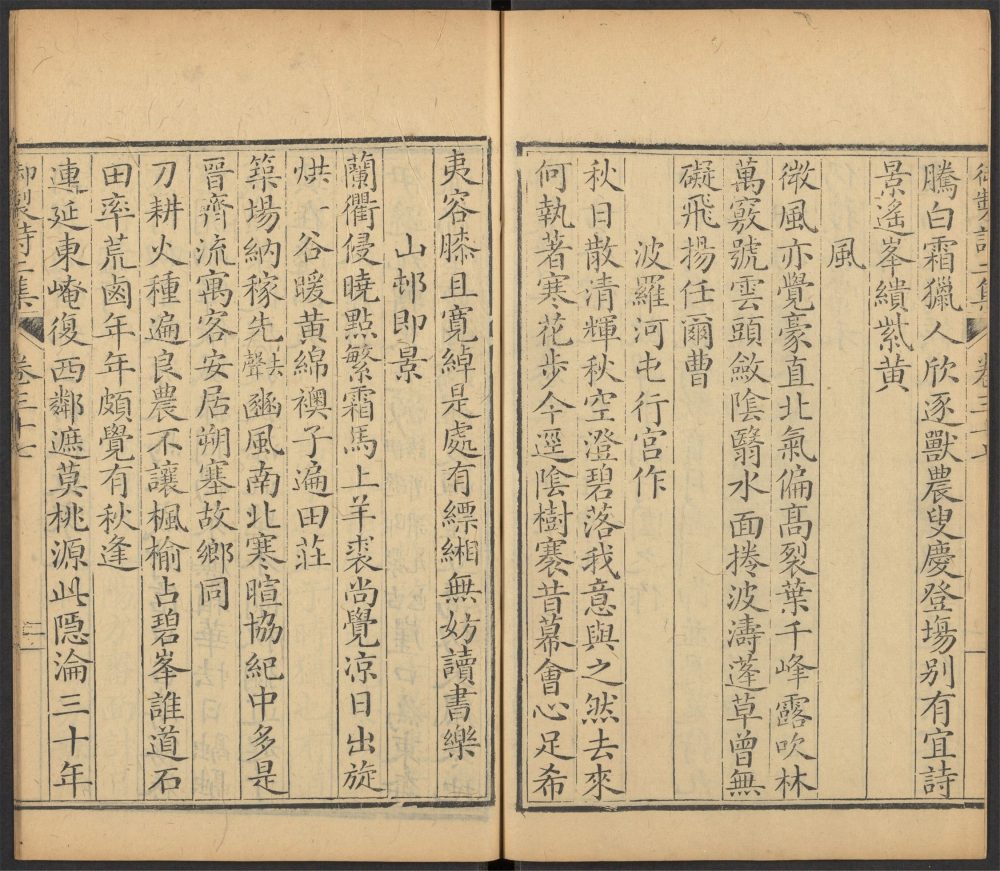 騰白霜獵人欣逐獸農叟慶登塲别有宜詩
景遙峯繢紫黄
風
微風亦覺豪直北氣偏髙裂葉千峰露吹林
萬竅號雲頭斂陰翳水面捲波濤蓬草曾無
礙飛揚任爾曹
波羅河屯行宮作
秋日散清輝秋空澄碧落我意與之然去來
何執著寒花步今逕陰樹褰昔幕會心足希
夷容膝且寛綽是處有縹緗無妨讀書樂
山邨即景
蘭衢侵曉點繁霜馬上羊裘尚覺凉日出旋
烘一谷暖黄綿襖子遍田莊
築場納稼先去聲豳風南北寒暄協紀中多是
晉齊流寓客安居朔塞故鄉同
刀耕火種遍良農不讓楓榆占碧峯誰道石
田率荒鹵年年頗覺有秋逢
連延東崦復西鄰遮莫桃源此隠淪三十年
御製詩二集 卷三十七 二